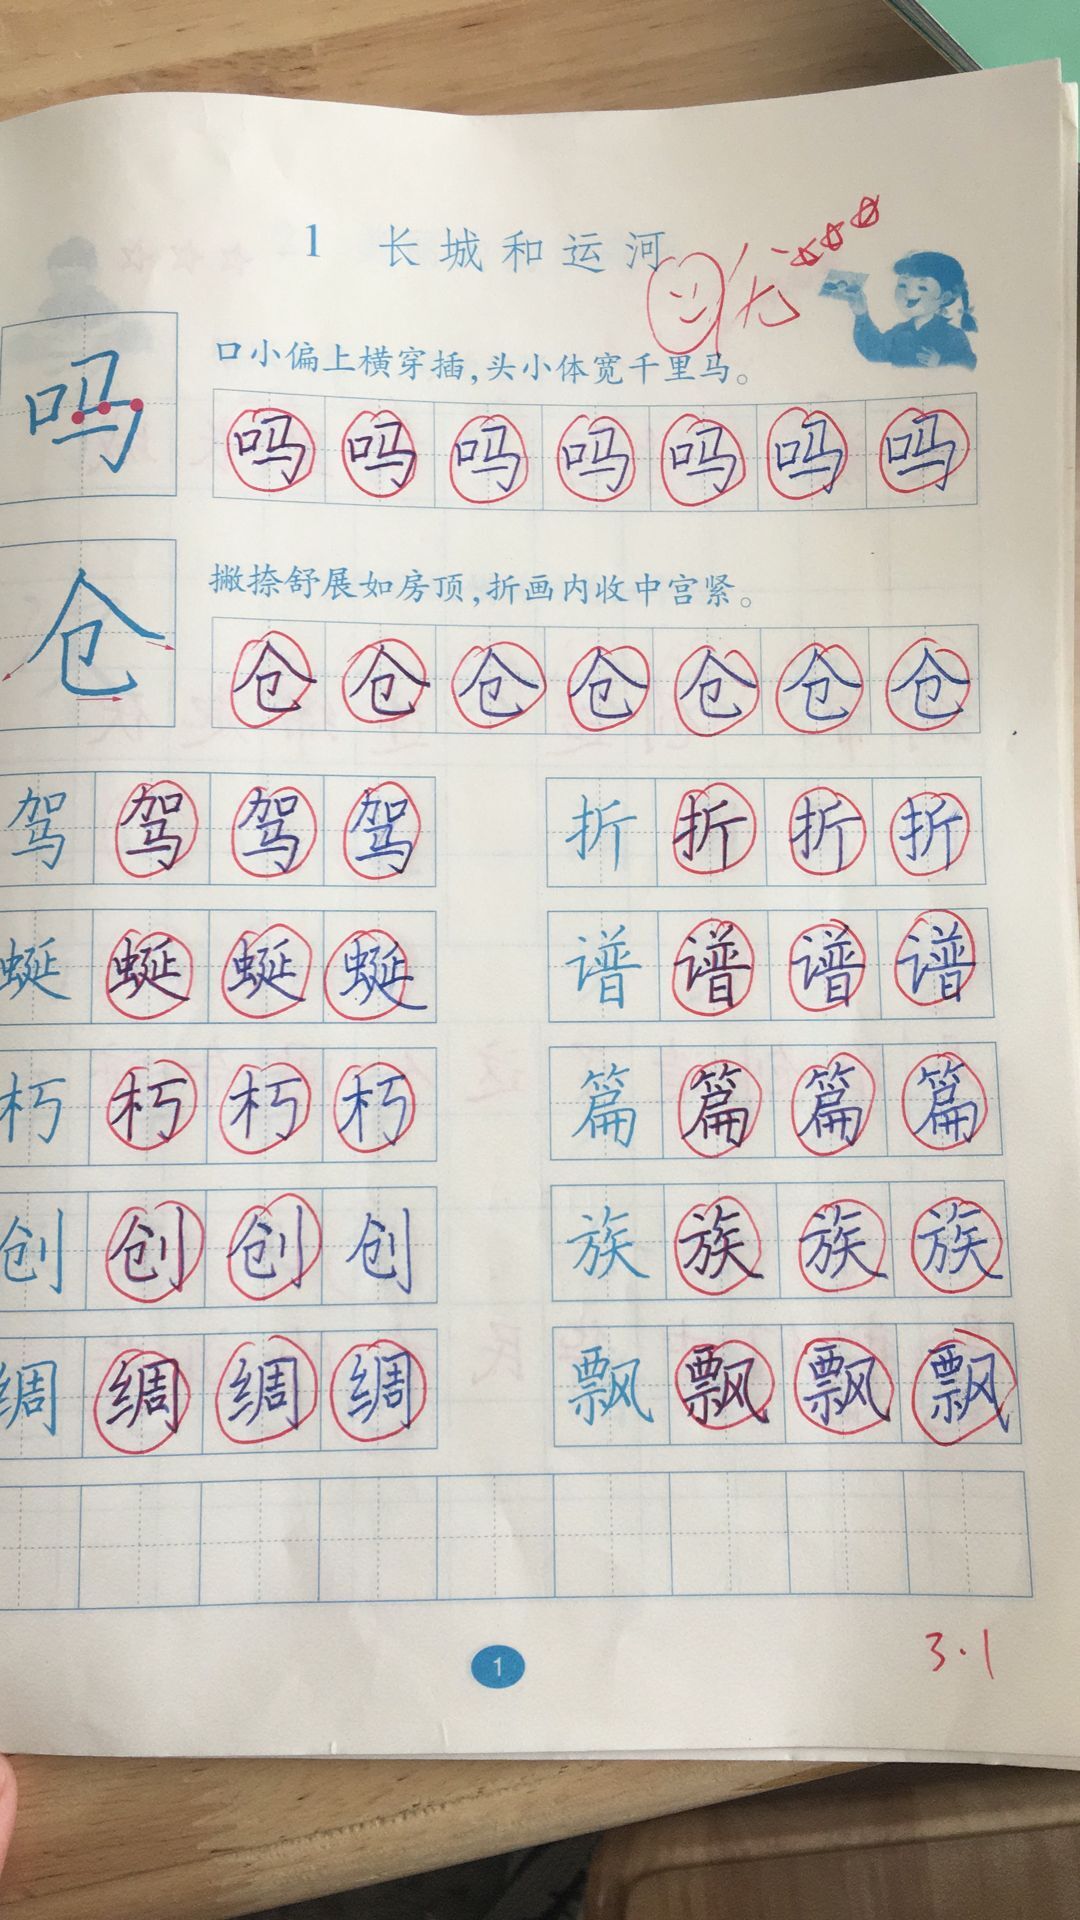 1 长城和运河
优
口小偏上横穿插，头小体宽千里马。
吗 吗 吗 吗 吗 吗 吗 吗
撇捺舒展如房顶，折画内收中宫紧。
仓 仓 仓 仓 仓 仓 仓 仓
驾 驾 驾 驾 折 折 折 折
蜒 蜒 蜒 蜒 谱 谱 谱 谱
朽 朽 朽 朽 篇 篇 篇 篇
创 创 创 创 族 族 族 族
绸 绸 绸 绸 飘 飘 飘 飘
1
3.1